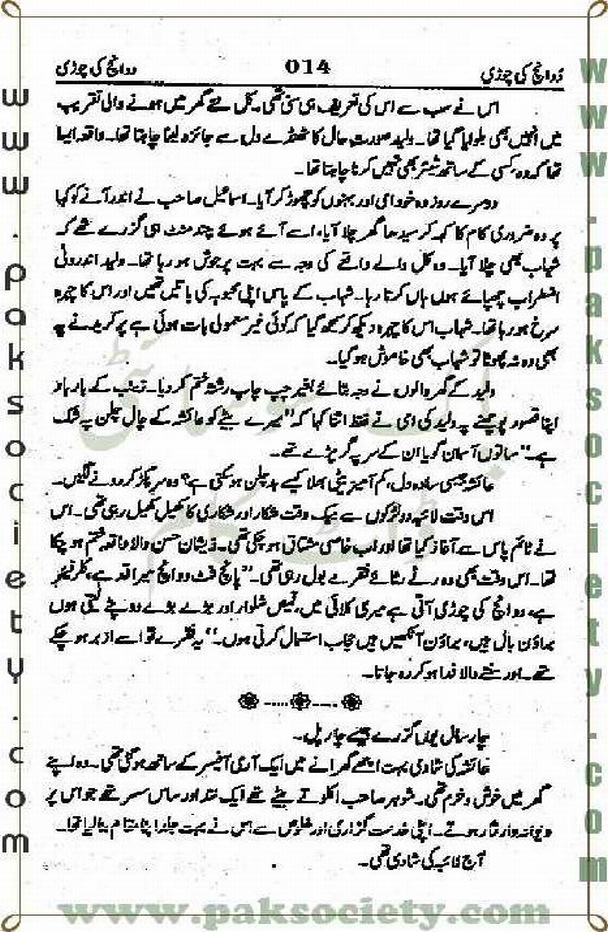 دو انچ کی چوڑی 014 دو انچ کی چوڑی
اس نے سب سے اس کی تعریف ہی سنی تھی۔ کل نئے گھر میں ہونے والی تقریب
میں انہیں بھی بلوایا گیا تھا۔ ولید صورت حال کا ٹھنڈے دل سے جائزہ لینا چاہتا تھا۔ واقعہ ایسا
تھا کہ وہ کسی کے ساتھ شیئر بھی نہیں کرنا چاہتا تھا۔
دوسرے روز وہ خود امی اور بہنوں کو چھوڑ کر آیا۔ اسماعیل صاحب نے اندر آنے کو کہا
پر وہ ضروری کام کا کہہ کر سیدھا گھر چلا آیا، اسے آئے ہوئے چند منٹ ہی گزرے تھے کہ
شہاب بھی چلا آیا۔ وہ کل والے واقعے کی وجہ سے بہت پرجوش ہو رہا تھا۔ ولید اندرونی
اضطراب چھپائے ہوں ہاں کرتا رہا۔ شہاب کے پاس اپنی محبوبہ کی باتیں تھیں اور اس کا چہرہ
سرخ ہو رہا تھا۔ شہاب اس کا چہرہ دیکھ کر سمجھ گیا کہ کوئی غیر معمولی بات ہوئی ہے پر کریدنے پہ
بھی وہ نہ پھوٹا تو شہاب بھی خاموش ہو گیا۔
ولید کے گھر والوں نے وجہ بتائے بغیر چپ چاپ رشتہ ختم کر دیا۔ زینب کے بار بار
اپنا قصور پوچھنے پہ ولید کی امی نے فقط اتنا کہا کہ "میرے بیٹے کو عائشہ کے چال چلن پہ شک
ہے۔" ساتوں آسمان گویا ان کے سر پہ گر پڑے تھے۔
عائشہ جیسی سادہ دل، کم آمیز بیٹی بھلا کیسے بد چلن ہو سکتی ہے؟ وہ سر پکڑ کر رونے لگیں۔
اس وقت لائبہ دو لڑکوں سے بیک وقت شکار اور شکاری کا کھیل کھیل رہی تھی۔ اس
نے ٹائم پاس سے آغاز کیا تھا اور اب خاصی مشتاق ہو چکی تھی۔ ذیشان حسن والا واقعہ ختم ہو چکا
تھا۔ اس وقت بھی وہ رٹے رٹائے فقرے بول رہی تھی۔ "پانچ فٹ دو انچ میرا قد ہے،
ہے، دو انچ کی چوڑی آتی ہے میری کلائی میں، قمیص شلوار اور بڑے بڑے دوپٹے لیتی ہوں
براؤن بال ہیں، براؤن آنکھیں ہیں حجاب استعمال کرتی ہوں۔" یہ فقرے تو اسے ازبر ہو چکے
تھے۔ اور سننے والا فدا ہو کر رہ جاتا۔
چار سال یوں گزرے جیسے چار پل۔
عائشہ کی شادی بہت اچھے گھرانے میں ایک آرمی آفیسر کے ساتھ ہو گئی تھی۔ وہ اپنے
گھر میں خوش و خرم تھی۔ شوہر صاحب اکلوتے بیٹے تھے ایک نند اور ساس سسر تھے جو اس پر
دیوانہ وار نثار ہوتے۔ اپنی خدمت گزاری اور خلوص سے اس نے بہت جلد اپنا مقام بنا لیا تھا۔
آج لائبہ کی شادی تھی۔
www.paksociety.com
www.paksociety.com
www.paksociety.com